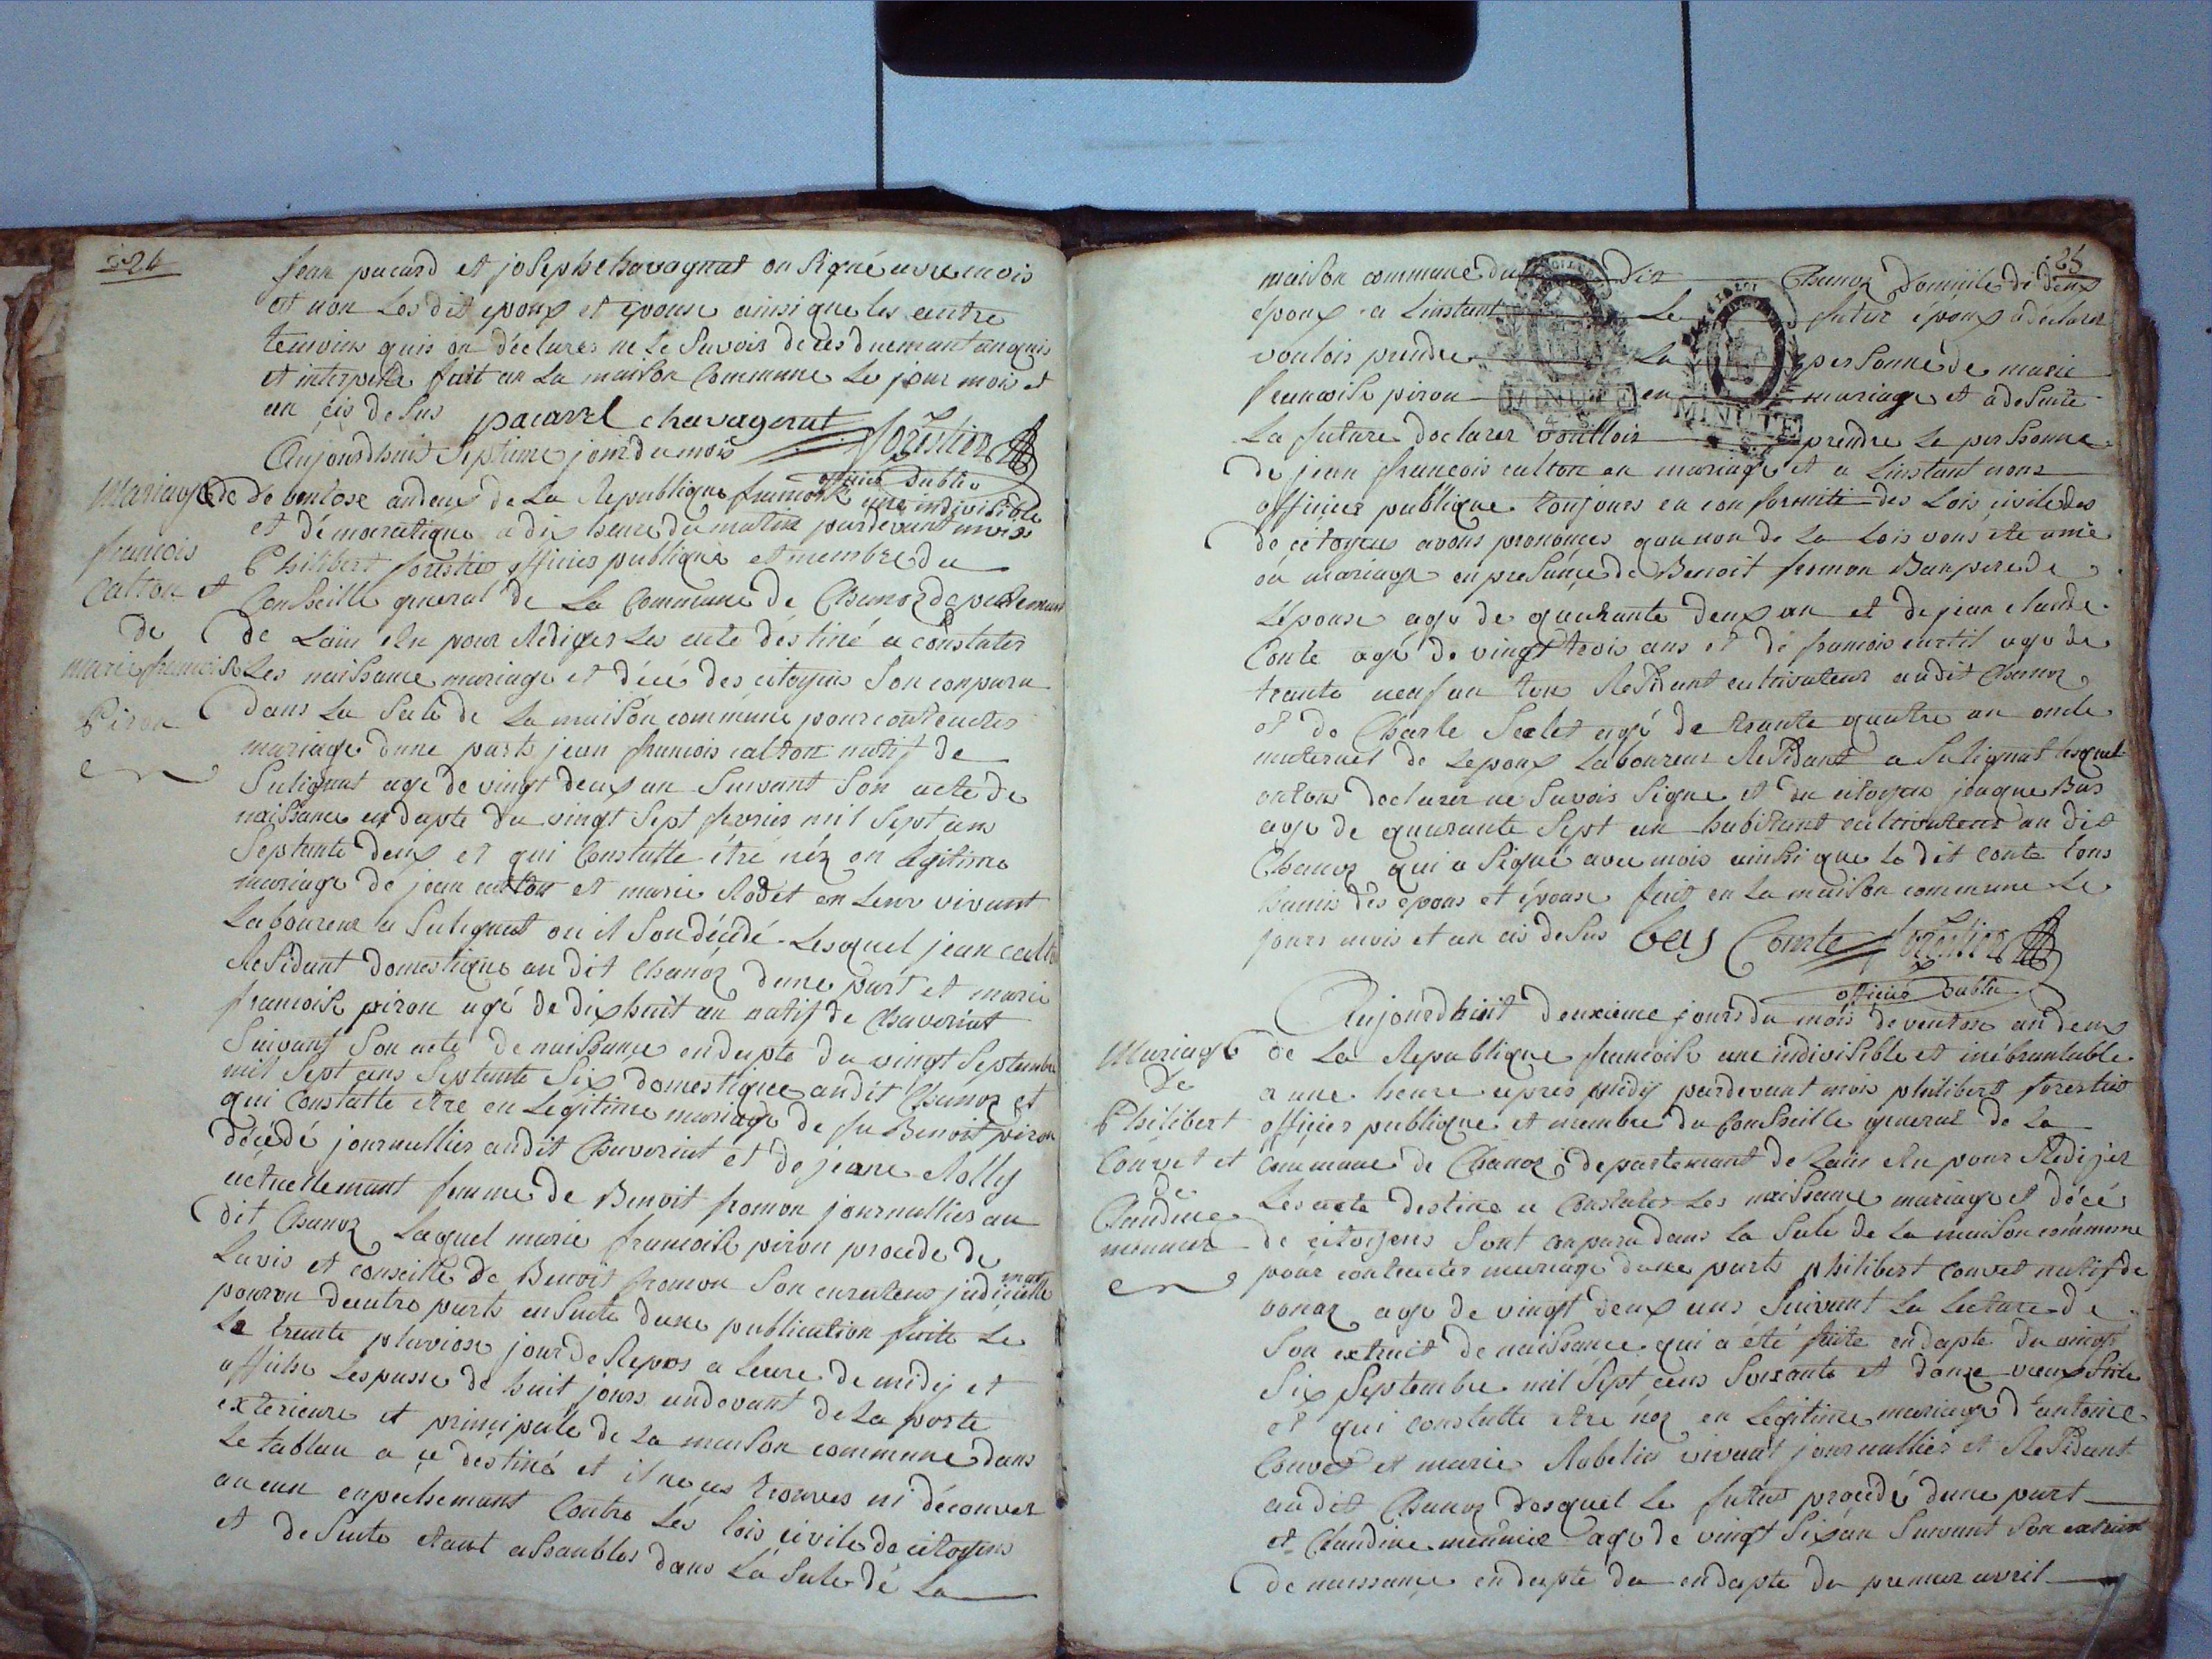 24
Jean pacard et joseph chavagnat on signé avec mois
et non Les dit epoux et épouse ainsi que les autre
temoins quis on déclarer ne Le savoir de ces duemant anquis
et interpelle fait an La maison Commune Le jour mois et
an cis desus pacard chavagnat forestier
officier public
Mariage de
francois
Calton et
de
marie francoise
Piron
Aujourdhuit septieme jour du mois
de ventose an deux de La Republique francoise une indivisible
et démocratique a dix heure du matin pardevant mois
Philibert forestier officier publique et membre du
Conseille general de La Commune de Chanoz departemant
de Lain elu pour Rediger Les acte déstiné a constater
Les naissance mariage et décé des citoyens son conparu
dans La sale de La maison commune pour contracter
mariage dune parts jean francois calton natif de
Sulignat age de vingt deux an suivant son acte de
naissance en dapte du vingt sept fevrier mil sept cens
septante deux et qui Constatte étre néz en Légitime
mariage de jean calton et marie Rodet en Leur vivant
Laboureur a Sulignat ou il son décédé. Lesquel jean calton
Residant domestique au dit Chanoz dune part et marie
francoise piron agé de dixhuit an natif de Chaveriat
suivant son acte de naissance en dapte du vingt septembre
mil sept cens septante six domestique audit Chanoz et
qui Constatte etre en Légitime mariage de fu Benoit piron
décédé journallier audit Chaveriat et de jeane Rolly
actuellemant femme de Benoit fromon journallier au
dit Chanoz Laquel marie francoise piron procede de
Lavis et conseille de Benoit fromon son curateur judicielle
pourvu dautre parts ensuite dune publication faite Le
Le trante pluviose jour de Repos a leure de midij et
affiche Lespasse de huit jours audevant de La porte
exterieure et principale de La maison commune dans
Le tablau a ce déstiné et il ne cest trouves ni découver
aucun enpechemant Contre Les lois civile de citoyens
et de suite etant assanbles dans La sale dé La
25
maison commune du dit Chanoz domicile de deux
époux a Linstant Le futur époux a déclarer
voulois prendre La personne de marie
francoise piron en mariage et a de suite
La future declarer voullois prendre Le personne
de jean francois calton en mariage et a Linstant nous
officier publique toujours en conformité des Lois civile des
de citoyens avons prononces quau non de La Lois vous ete unie
en mariage en presance de Benoit fromon Beaupere de
Lépouse age de quarante deux an et de jean claude
Conte agé de vingt trois ans et dé francois curtil age de
trante neuf an tous Residant cultivateur audit Chanoz
et de Charle Seclet agé de trante quatre an oncle
maternel de Lepoux Laboureur Residant a Sulignat lesquel
on tous declarer ne savois signe et du citoyen jaque Bas
age de quarante sept an habitant cultivateur au dit
Chanoz qui a signé avec mois ainsi que Le dit conte tous
hamis dés epous et épouse fait en La maison commune Le
jours mois et an cis desus bas Comte forestier
officier public
Mariage
de
Philibert
Convet et
de
Claudine
meunier
Aujourdhuit deuxieme jours du mois de ventose an deux
de La Republique francoise une indivisible et inébranlable
a une heure apres midij pardevant mois philibert forestier
officier publique et membre du Conseille general de La
Commune de Chanoz departemant de Lain elu pour Rediger
Les acte destine a Constater Les naissance mariage et décé
de citoyens sont conparu dans La sale de La maison commune
pour contracter mariage dune parts philibert convet natif de
vonaz age de vingt deux ans suivant La Lecture de
son extrait de naissance qui a été faite en dapte du vingt
six septembre mil sept cens soixante et donze vieux stile
et qui constatte etre néz en Légitime mariage d'antoine
Convet et marie Rabelin vivant journallier et Residant
audit Chanoz desquel Le futur procédé dune part
et Claudine meunier age de vingt six an suivant son extrait
de naissance en dapte du en dapte du premier avril
MINUTE
MINUTE